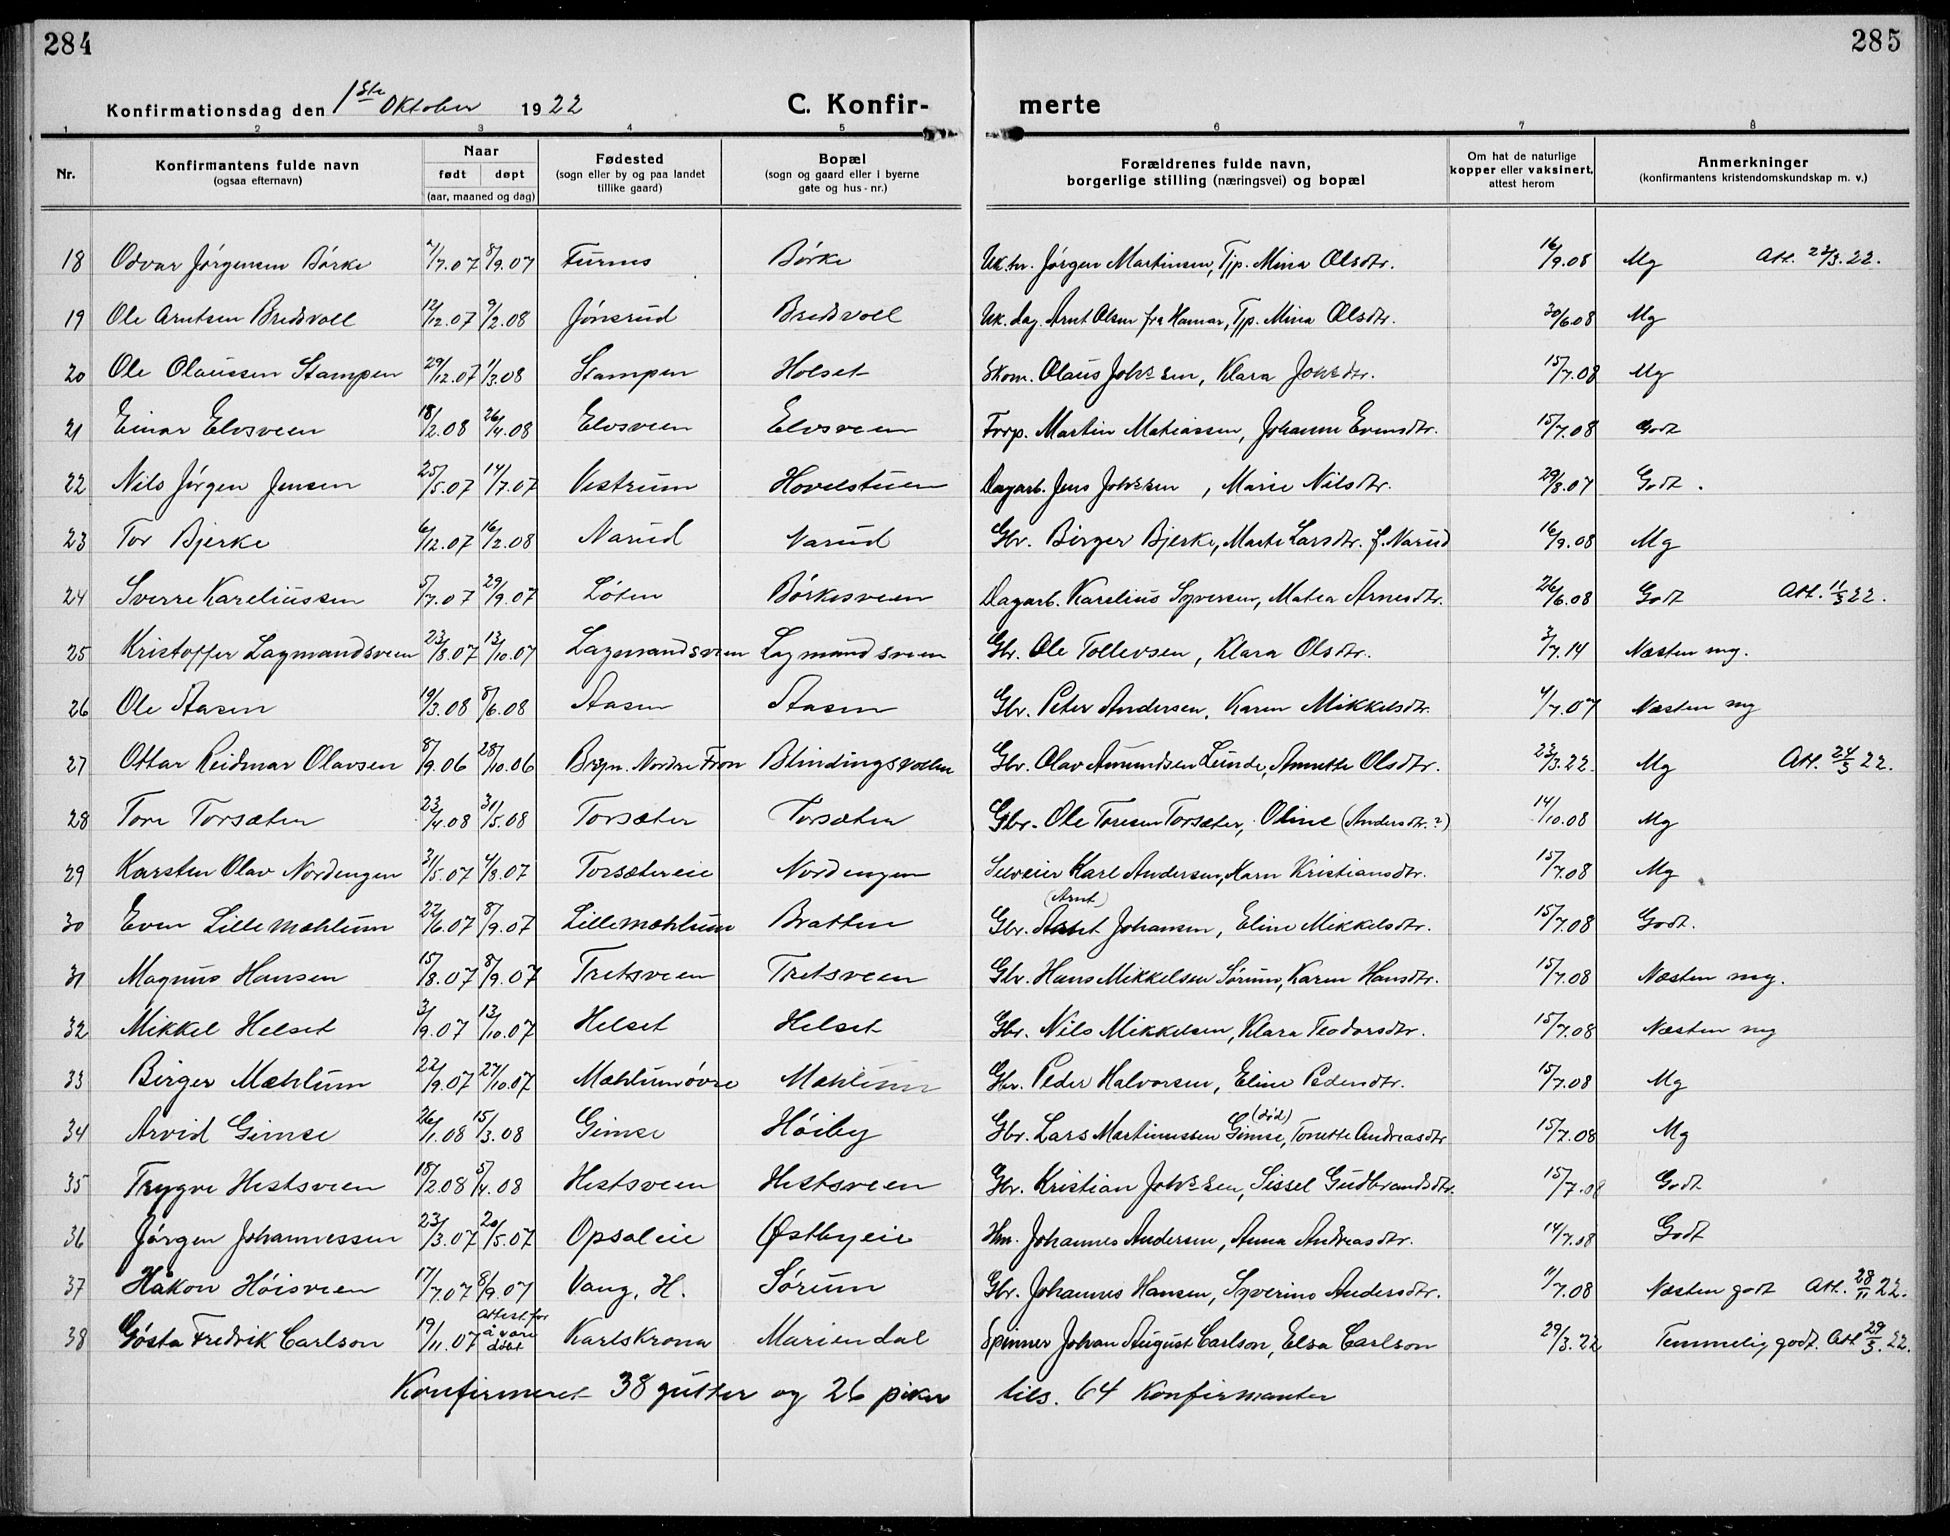 284
285
Konfirmationsdag den 1ste Oktober 1922
C. Konfir-
merte
1 2 3 4 5 6 7 8
Nr.
Konfirmantens fulde navn
(ogsaa efternavn)
Naar
født døpt
(aar, maaned og dag)
Fødested
(sogn eller by og paa landet
tillike gaard)
Bopæl
(sogn og gaard eller i byerne
gate og hus-nr.)
Forældrenes fulde navn,
borgerlige stilling (næringsvei) og bopæl
Om hat de naturlige
kopper eller vaksinert,
attest herom
Anmerkninger
(konfirmantens kristendomskundskap m. v.)
18 Odvar Jørgensen Børke 2/7.07 8/9.07 Furnes Børke Uk. Jørgen Martinsen, Tjp. Mina Olsdtr. 16/9.08 Mg Att. 22/3.22.
19 Ole Arntsen Bredvoll 12/12.07 9/2.08 Jønsrud Bredvoll Uk. dag. Arnt Olsen fra Hamar, Tjp. Mina Olsdtr. 30/6.08 Mg
20 Ole Olaussen Stampen 29/12.07 1/3.08 Stampen Holset Skom. Olaus Johssen, Klara Johsdtr. 15/7.08 Mg
21 Einar Elvsveen 18/2.08 26/4.08 Elvsveen Elvsveen Forp. Martin Matiassen, Johanne Evensdtr. 15/7.08 Godt
22 Nils Jørgen Jensen 25/5.07 14/7.07 Vestrum Hovelstuen Dagarb. Jens Johssen, Marie Nilsdtr. 29/8.07 Godt.
23 Tor Bjerke 6/12.07 16/2.08 Narud Narud Gbr. Birger Bjerke, Marte Larsdtr. f. Narud 16/9.08 Mg
24 Sverre Kareliussen 5/7.07 29/9.07 Løten Børkesveen Dagarb. Karelius Syversen, Matea Arnesdtr. 26/6.08 Godt Att. 11/3 22.
25 Kristoffer Lagmandsveen 23/8.07 13/10.07 Lagmandsveen Lagmandsveen Gbr. Ole Tollevsen, Klara Olsdtr. 3/7.14 Næsten mg.
26 Ole Aasen 19/3.08 8/6.08 Aasen Aasen Gbr. Peter Andersen, Karen Mikkelsdtr. 4/7.07 Næsten mg
27 Ottar Reidmar Olavsen 8/9.06 28/10.06 Brgn. Nordre Fron Blindingsvollen Gbr. Olav Amundsen Lunde, Annette Olsdtr. 23/3.22. Mg Att. 24/3 22.
28 Tore Torsæten 23/4.08 31/5.08 Torsæter Torsæten Gbr. Ole Toresen Torsæter, Oline (Andersdtr.?) 14/10.08 Mg
29 Karsten Olav Nordengen 31/5.07 4/8.07 Torsætereie Nordengen Selveier Karl Andersen, Karn Kristiansdtr. 15/7.08 Mg
(Arnt)
30 Even Lillemæhlum 22/6.07 8/9.07 Lillemæhlum Bratten Gbr. Johansen, Eline Mikkelsdtr. 15/7.08 Godt.
31 Magnus Hansen 15/8.07 8/9.07 Tretsveen Tretsveen Gbr. Hans Mikkelsen Sørum, Karen Hansdtr. 15/7.08 Næsten mg.
32 Mikkel Helset 3/9.07 13/10.07 Helset Helset Gbr. Nils Mikkelsen, Klara Teodorsdtr. 15/7.08 Næsten mg
33 Birger Mæhlum 22/9.07 27/10.07 Mæhlum øvre Mæhlum Gbr. Peder Halvorsen, Eline Pedersdtr. 15/7.08 Mg
(død)
34 Arvid Gimse 26/1.08 15/3.08 Gimse Høiby Gbr. Lars Martinussen Gimse, Tonette Andreasdtr 15/7.08 Mg
35 Trygve Hestsveen 18/2.08 5/4.08 Hestsveen Hestsveen Gbr. Kristian Johssen, Sissel Gudbrandsdtr. 15/7.08 Godt
36 Jørgen Johannessen 23/3.07 20/5.07 Opsaleie Østbyeie Hm. Johannes Andersen, Anna Andreasdtr. 14/7.08 Godt
37 Håkon Høisveen 17/7.07 8/9.07 Vang, H. Sørum Gbr. Johannes Hansen, Syverine Andersdtr. 11/7.08 Næsten godt Att. 28/11 22.
38 Gösta Fredrik Carlson 19/11.07 Attest for å være døbt Karlskrona Mariendal Spinner Johan August Carlson, Elsa Carlson 29/3.22 Temmelig godt. Att. 29/3.22.
Konfirmeret 38 gutter og 26 piker tils. 64 Konfirmanter